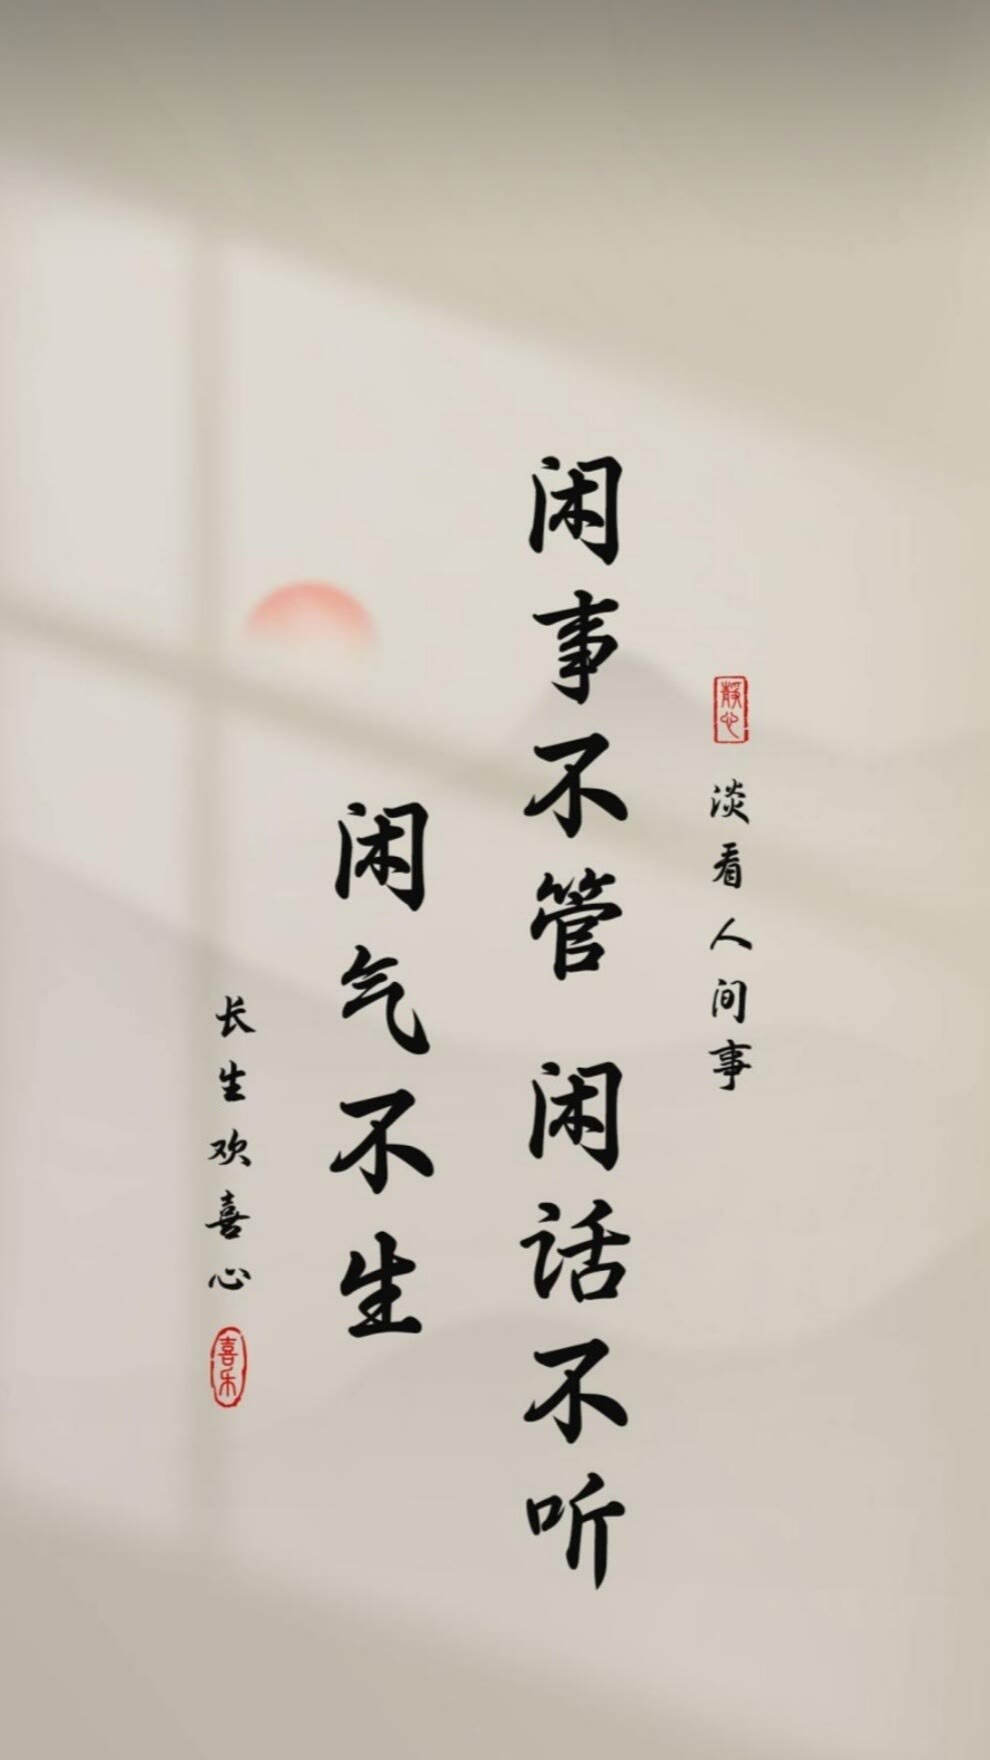 静心
淡看人间事
闲事不管 闲话不听
闲气不生
长生欢喜心
喜乐